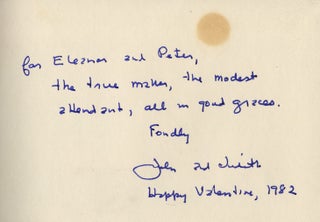 for Eleanor and Peter,
the true maker, the modest
attendant, all in good graces.
Fondly
John and Judith
Happy Valentine, 1982